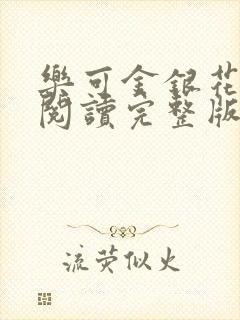 樂可金銀花
閱讀完整版
流荧似火